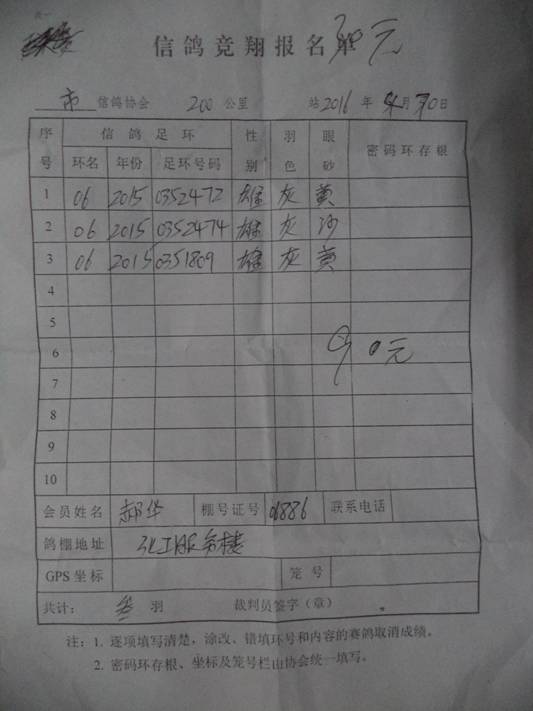 信鸽竞翔报名单 元
市 信鸽协会 200 公里 站 2016 年 4 月 30 日
序号 信鸽足环 性别 羽色 眼砂 密码环存根
环名 年份 足环号码
1 06 2015 0352472 雄 灰 黄
2 06 2015 0352474 雄 灰 沙
3 06 2015 0351809 雄 灰 黄
4
5
6 90元
7
8
9
10
会员姓名 郝华 棚号证号 01886 联系电话
鸽棚地址 服务楼
GPS 坐标 笼号
共计: 叁 羽 裁判员签字(章)
注:1. 逐项填写清楚,涂改、错填环号和内容的赛鸽取消成绩。
2. 密码环存根、坐标及笼号栏由协会统一填写。